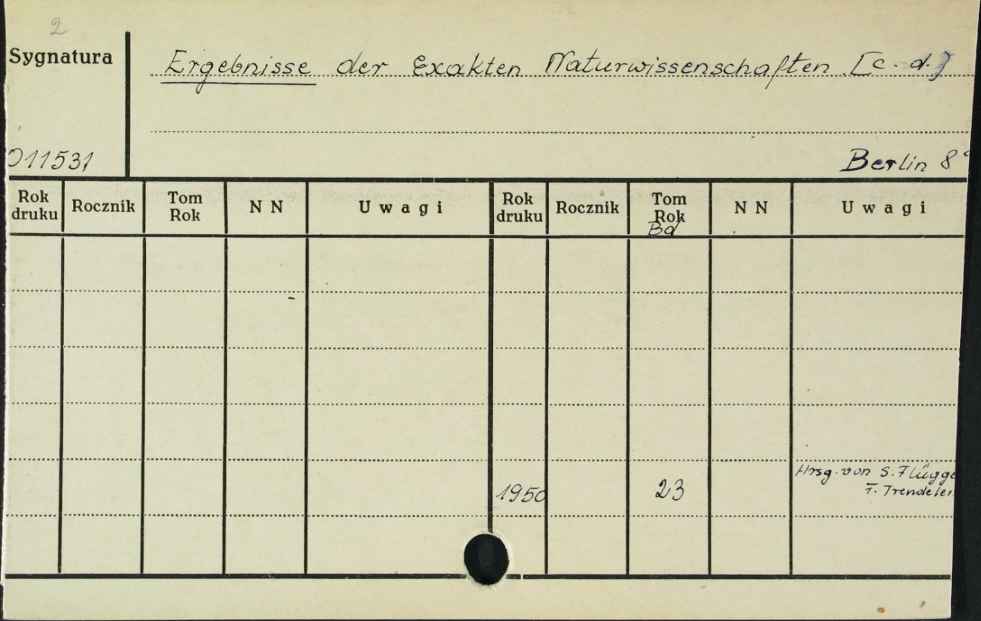 2
Sygnatura
Ergebnisse der Exakten Naturwissenschaften [c. d.]
011531
Berlin 8°
Rok druku Rocznik Tom Rok N N Uwagi Rok druku Rocznik Tom Rok Bd N N Uwagi
1950 23 Hrsg. von S. Flügge
F. Trendelen